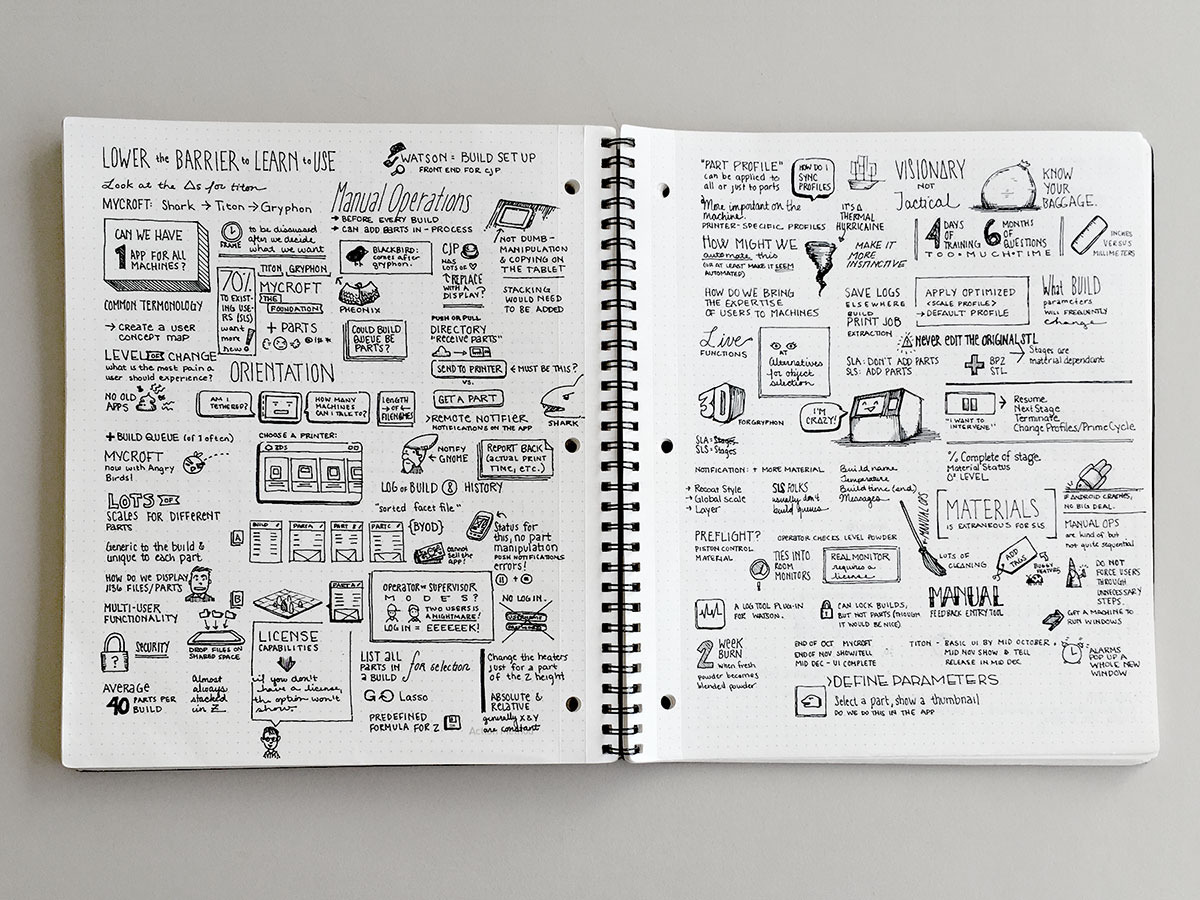 LOWER the BARRIER to LEARN to USE
Look at the Δs for titon
MYCROFT: Shark → Titon → Gryphon
WATSON = BUILD SET UP
FRONT END FOR CJP
Manual Operations
→ BEFORE EVERY BUILD
→ CAN ADD PARTS IN-PROCESS
CAN WE HAVE
1 APP FOR ALL
MACHINES?
FRAME
to be discussed
after we decide
what we want
BLACKBIRD:
comes after
gryphon.
CJP
HAS
LOTS OF
REPLACE
WITH A
DISPLAY?
NOT DUMB-
MANIPULATION
& COPYING ON
THE TABLET
STACKING
WOULD NEED
TO BE ADDED
70%
TO EXIST-
ING USE-
RS (SLS)
want
more
new!
TITON, GRYPHON,
MYCROFT
THE
FOUNDATION
+ PARTS
PHEONIX
COULD BUILD
QUEUE BE
PARTS?
COMMON TERMONOLOGY
→ create a user
concept map
PUSH OR PULL
DIRECTORY
"RECEIVE PARTS"
SEND TO PRINTER
← MUST BE THIS?
VS.
GET A PART
LEVEL OF CHANGE
what is the most pain a
user should experience?
ORIENTATION
NO OLD
APPS
AM I
TETHERED?
HOW MANY
MACHINES
CAN I TALK TO?
LENGTH
OF
FILENAMES
>REMOTE NOTIFIER
NOTIFICATIONS ON THE APP
SHARK
+ BUILD QUEUE (of 1 often)
MYCROFT
now with Angry
Birds!
CHOOSE A PRINTER:
3DS
NOTIFY
GNOME
REPORT BACK
(ACTUAL PRINT
TIME, ETC.)
LOG OF BUILD & HISTORY
"sorted facet file"
LOTS OF
SCALES FOR DIFFERENT
PARTS
A
BUILD
PART A
PART B
PART C
{BYOD}
cannot
sell the
app!
Status for
this, no part
manipulation
PUSH NOTIFICATIONS
errors!
Generic to the build &
unique to each part
HOW DO WE DISPLAY
1136 FILES/PARTS
B
PART A
OPERATOR vs SUPERVISOR
MODES?
TWO USERS IS
A NIGHTMARE!
LOG IN = EEEEEEK!
NO LOG IN.
MULTI-USER
FUNCTIONALITY
SECURITY
DROP FILES ON
SHARED SPACE
LICENSE
CAPABILITIES
if you don't
have a license,
the option won't
show.
LIST ALL
PARTS IN
A BUILD
for selection
Lasso
PREDEFINED
FORMULA FOR Z
Change the heaters
just for a part
of the Z height
ABSOLUTE &
RELATIVE
generally X & Y
are constant
AVERAGE
40 PARTS PER
BUILD
Almost
always
stacked
in Z
"PART PROFILE"
can be applied to
all or just to parts
HOW DO I
SYNC
PROFILES
More important on the
machine.
PRINTER-SPECIFIC PROFILES
IT'S A
THERMAL
HURRICAINE
VISIONARY
NOT
Tactical
KNOW
YOUR
BAGGAGE.
HOW MIGHT WE
automate this
(OR AT LEAST MAKE IT SEEM
AUTOMATED)
MAKE IT
MORE
INSTINCTIVE
4 DAYS
OF
TRAINING
6 MONTHS
OF
QUESTIONS
TOO•MUCH•TIME
INCHES
VERSUS
MILLIMETERS
HOW DO WE BRING
THE EXPERTISE
OF USERS TO MACHINES
SAVE LOGS
ELSEWHERE
BUILD
PRINT JOB
EXTRACTION
APPLY OPTIMIZED
<SCALE PROFILE?
→DEFAULT PROFILE
What BUILD
parameters
WILL FREQUENTLY
change
Live
FUNCTIONS
AT
Alternatives
for object
selection
NEVER EDIT THE ORIGINAL STL
SLA: DON'T ADD PARTS
SLS: ADD PARTS
BPZ
STL
Stages are
material dependant
3D
FOR GRYPHON
I'M
CRAZY!
"I WANT TO
INTERVENE"
Resume
Next Stage
Terminate
Change Profiles/Prime Cycle
SLA = Stages
SLS = Stages
NOTIFICATION: + MORE MATERIAL
→ Recoat Style
→ Global scale
→ Layer
SLS FOLKS
usually don't
build queues
Build name
Temperature
Build time (end)
Messages
% Complete of stage
Material Status
O² LEVEL
IF ANDROID CRASHES,
NO BIG DEAL.
MANUAL OPS
MATERIALS
IS EXTRANEOUS FOR SLS
MANUAL OPS
are kind of but
not quite sequential
PREFLIGHT?
PISTON CONTROL
MATERIAL
OPERATOR CHECKS LEVEL POWDER
TIES INTO
ROOM
MONITORS
REAL MONITOR
requires a
license
LOTS OF
CLEANING
ADD
TAGS
BUGGY
FEATURE
DO NOT
FORCE USERS
THROUGH
UNNECESSARY
STEPS.
A LOG TOOL PLUG-IN
FOR WATSON.
CAN LOCK BUILDS,
BUT NOT PARTS (THOUGH
IT WOULD BE NICE)
MANUAL
FEEDBACK ENTRY TOOL
GET A MACHINE TO
RUN WINDOWS
2 WEEK
BURN
when fresh
powder becomes
blended powder
END OF OCT MYCROFT
END OF NOV SHOW/TELL
MID DEC - UI COMPLETE
TITON - BASIC UI BY MID OCTOBER
MID NOV SHOW & TELL
RELEASE IN MID DEC
ALARMS
POP UP A
WHOLE NEW
WINDOW
>DEFINE PARAMETERS
Select a part, show a thumbnail
DO WE DO THIS IN THE APP